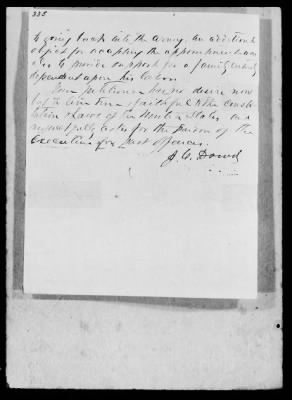 335
to going back into the Army, an additional
object for accepting the appointment was
also to provide support for a family entirely
dependent upon his labor.
Your petitioner has no desire now
but to live &
faithful to the Constitution
& Laws of the United States and
respectfully asks for the pardon of the
Executive for past offences.
J. C. Dowd